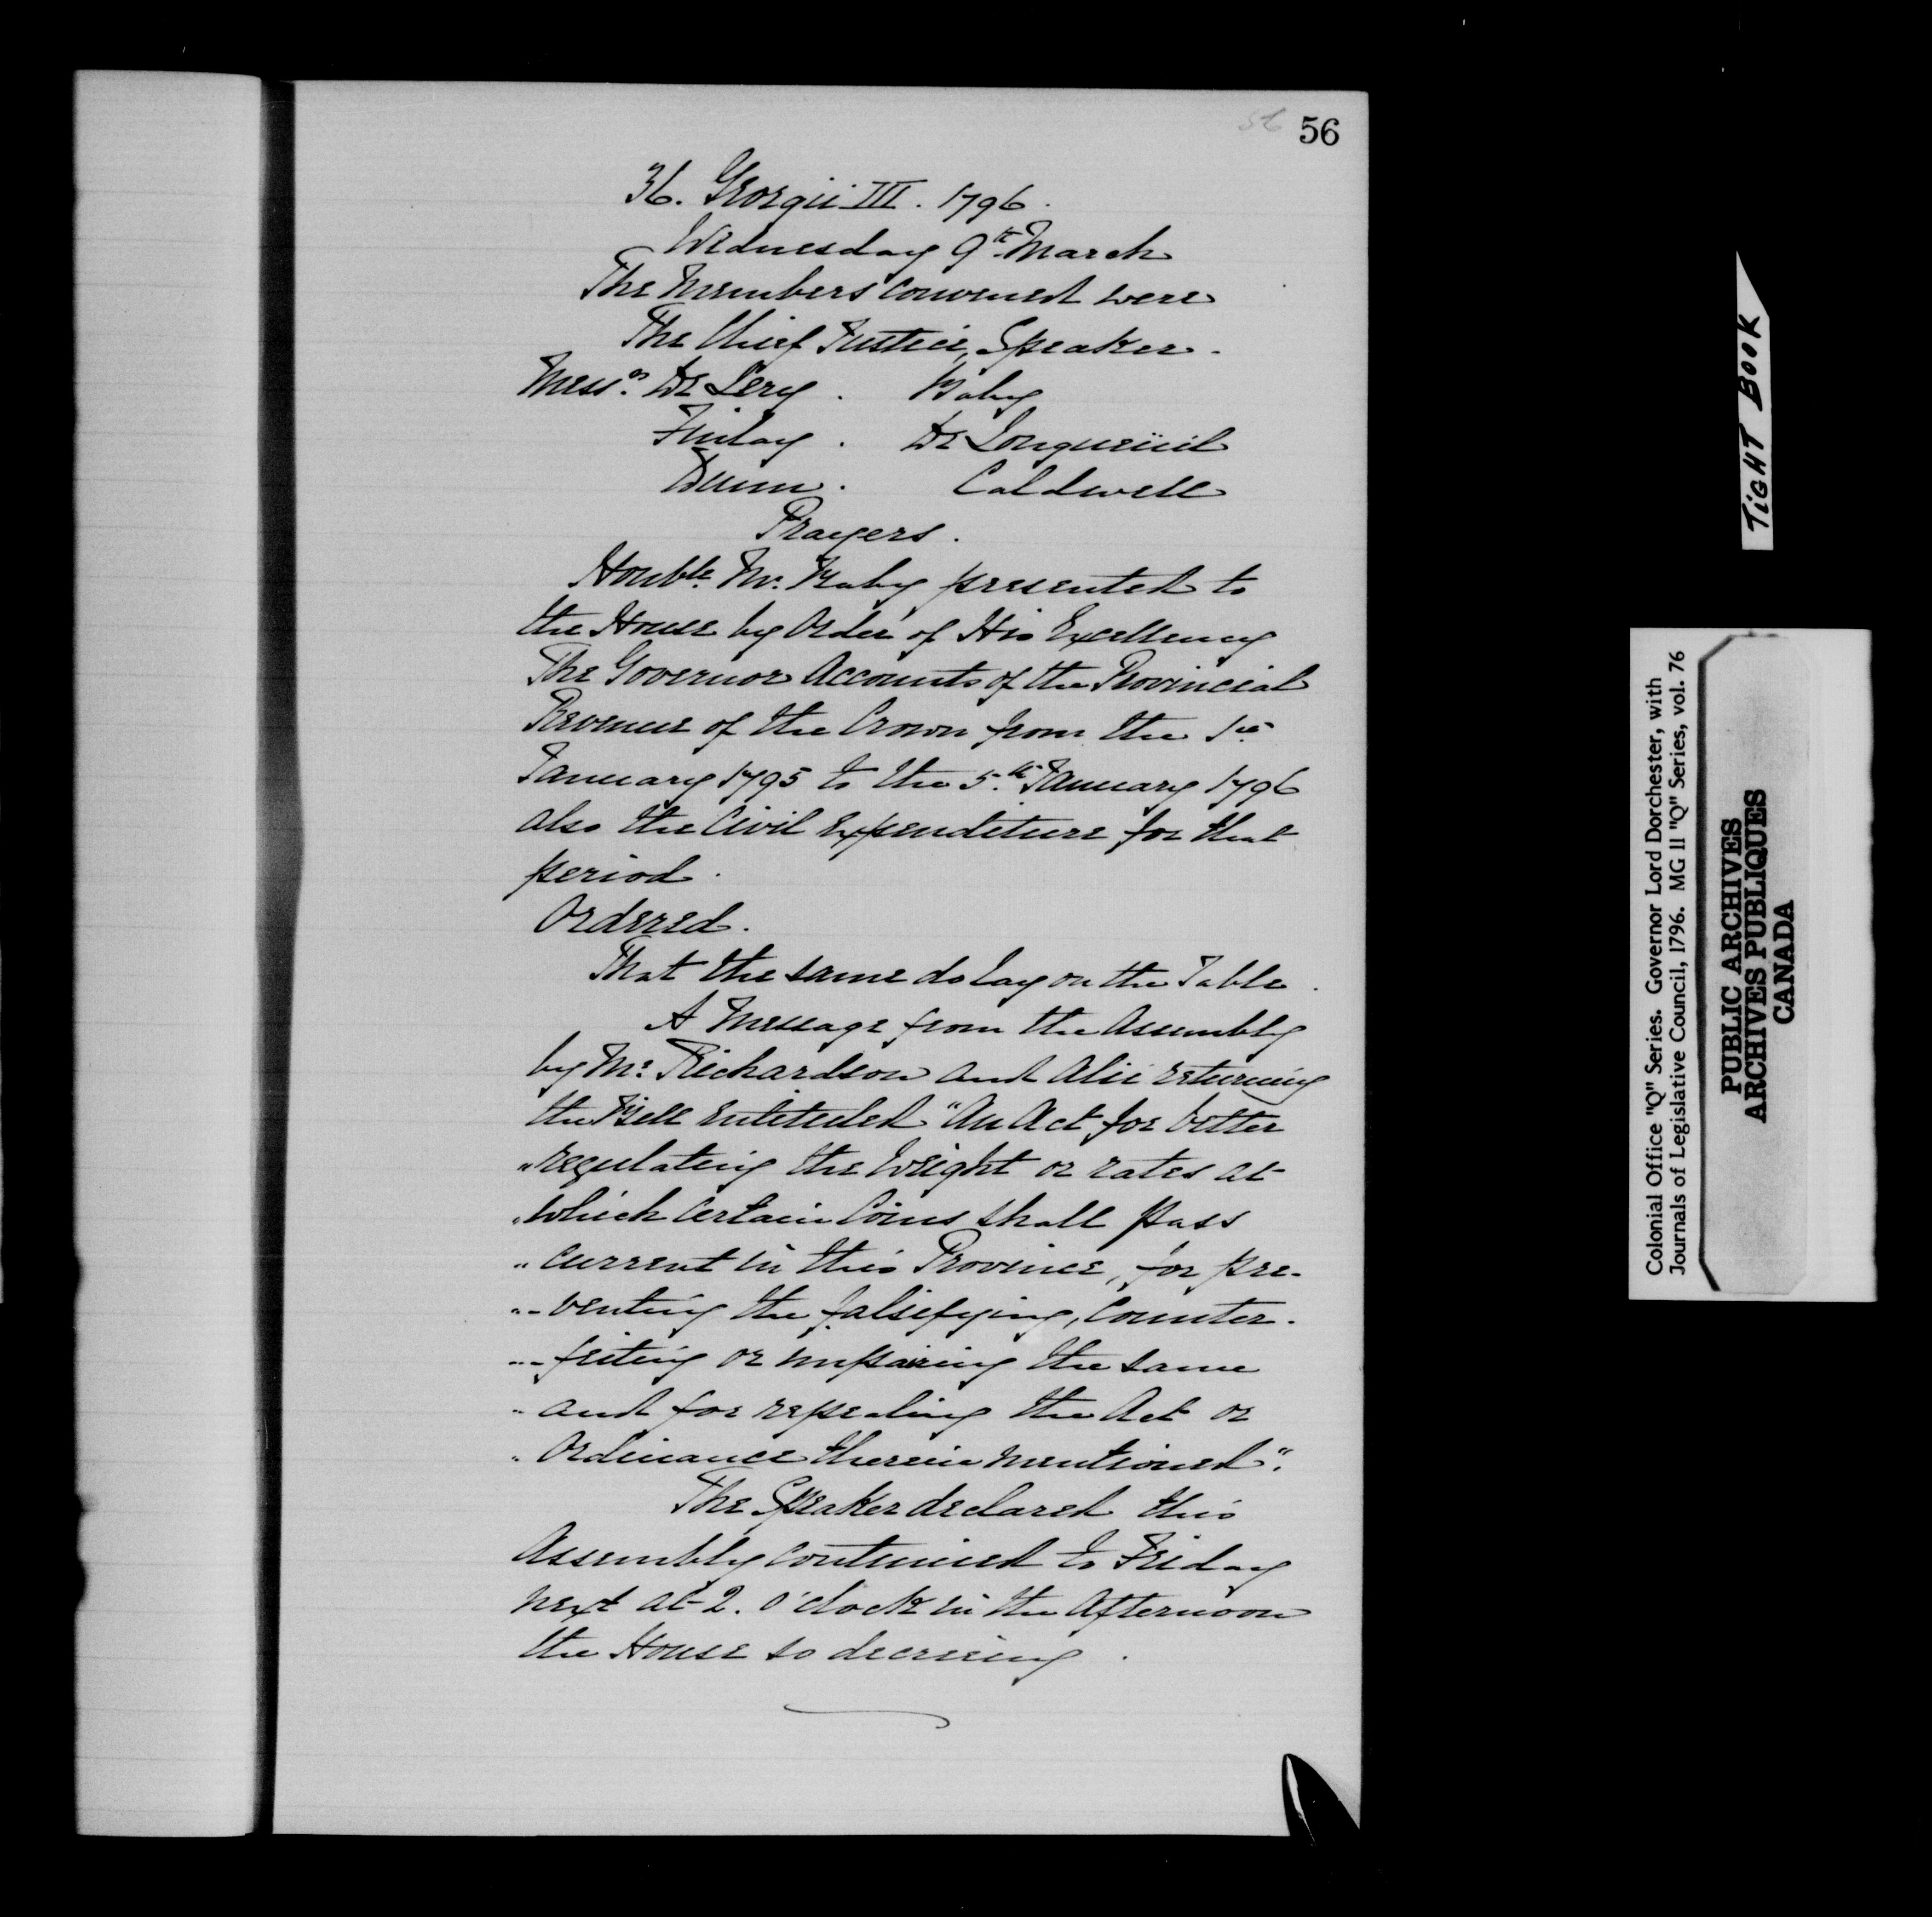 56 56
36. Georgii III. 1796.
Wednesday 9th March
The Members convened were
The Chief Justice, Speaker.
Messrs. De Lery. Baby
Finlay. De Longueüil
Dunn. Caldwell
Prayers.
Honble. Mr. Baby presented to
the House by Order of His Excellency
The Governor Accounts of the Provincial
Revenue of the Crown from the 1st
January 1795 to the 5th January 1796
also the Civil Expenditure for that
period.
Ordered.
That the same do lay on the Table.
A Message from the Assembly
by Mr. Richardson and alii returning
the Bill entituled "An Act for better
"regulating the Weight or rates at
"which certain Coins shall pass
"current in this Province, for pre-
"-venting the falsifying, counter-
"-feiting or impairing the same
"and for repealing the Act or
"Ordinance therein mentioned".
The Speaker declared this
Assembly continued to Friday
next at 2. o'clock in the Afternoon
the House so decreeing.
TIGHT BOOK
Colonial Office "Q" Series. Governor Lord Dorchester, with
Journals of Legislative Council, 1796. MG 11 "Q" Series, vol. 76
PUBLIC ARCHIVES
ARCHIVES PUBLIQUES
CANADA